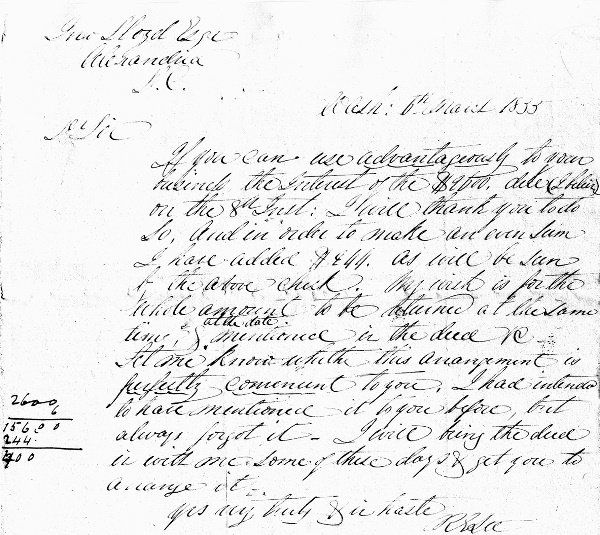 Jno Lloyd Esqr
Alexandria
D.C.
Wash: 6th March 1833
Dr Sir
If you can use advantageously to your
business the Interest of the $2600. due (I believe)
on the 8th Inst: I will thank you to do
so, And in order to make an even sum
I have added $244. as will be seen
by the above check. My wish is for the
whole amount to be returned at the same
time, & at the date mentioned in the deed &c
Let me know whether this arrangement is
perfectly convenient to you. I had intended
to have mentioned it to you before, but
always forgot it - I will bring the deed
in with me some of these days & get you to
arrange it -
yrs very truly & in haste
R E Lee
2600
6
156.00
244.
400